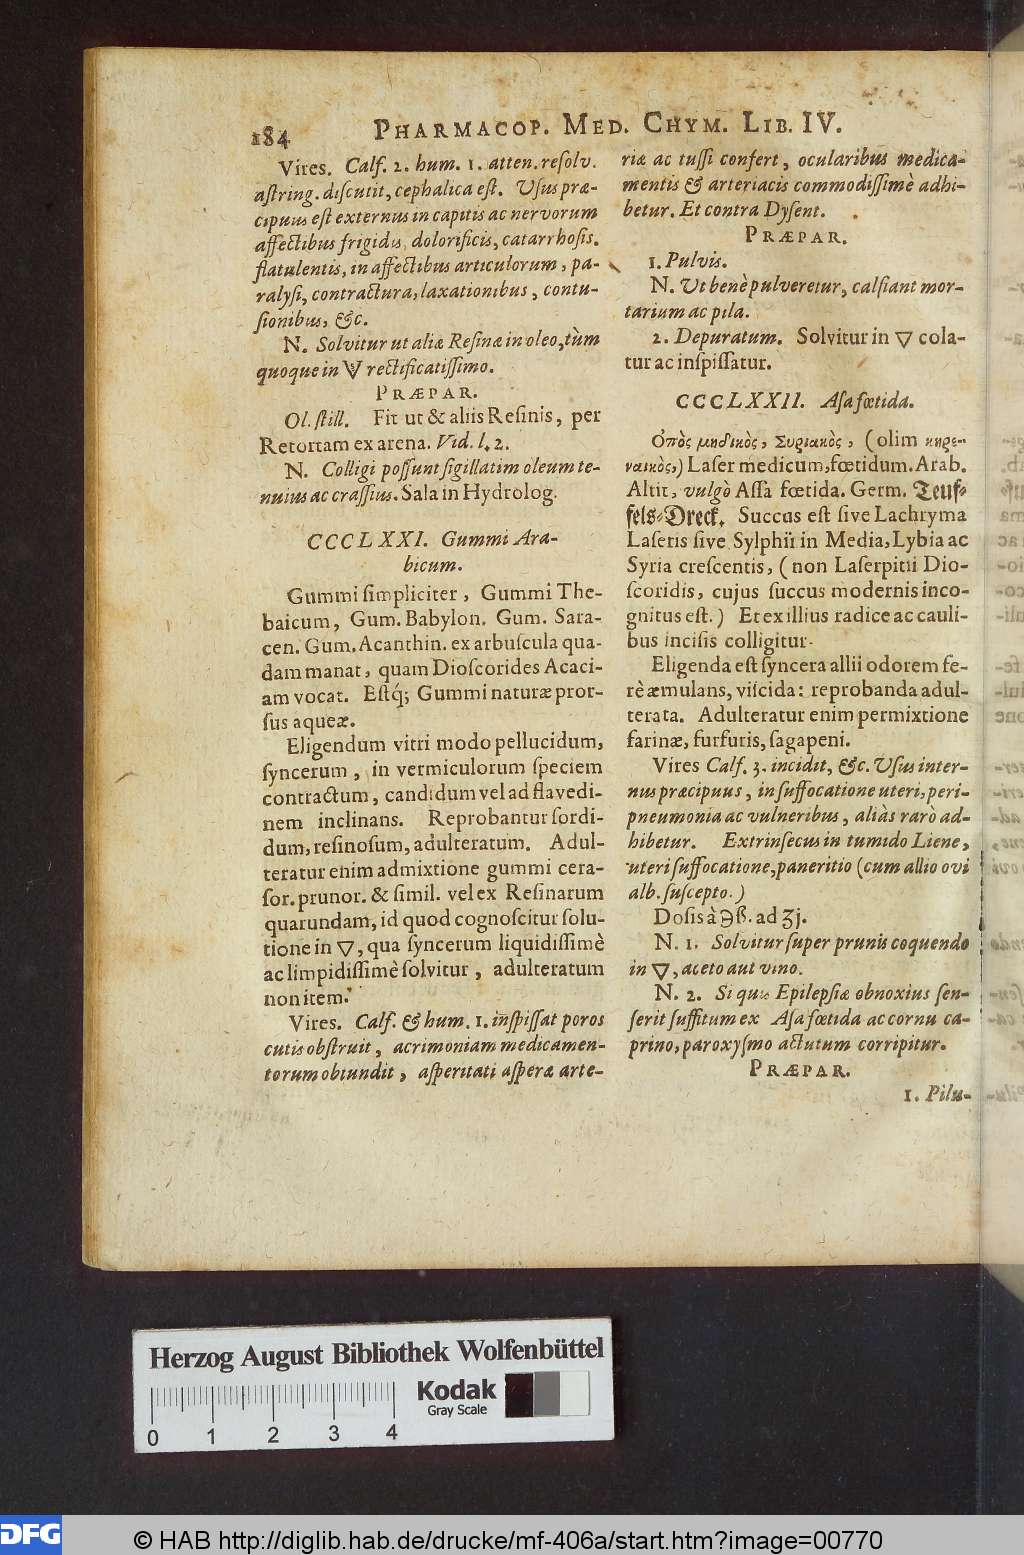 184 PHARMACOP. MED. CHYM. LIB. IV.
Vires. Calf. 2. hum. 1. atten. reſolv.
aſtring. diſcutit, cephalica eſt. Uſus præ-
cipuus eſt externus in capitis ac nervorum
affectibus frigidis, dolorificis, catarrhoſis.
flatulentis, in affectibus articulorum, pa-
ralyſi, contractura, laxationibus, contu-
ſionibus, &c.
N. Solvitur ut aliæ Reſinæ in oleo, tùm
quoque in 🜈 rectificatiſſimo.
PRÆPAR.
Ol. ſtill. Fit ut & aliis Reſinis, per
Retortam ex arena. Vid. l. 2.
N. Colligi poſſunt ſigillatim oleum te-
nuius ac craſſius. Sala in Hydrolog.
CCCLXXI. Gummi Ara-
bicum.
Gummi ſimpliciter, Gummi The-
baicum, Gum. Babylon. Gum. Sara-
cen. Gum. Acanthin. ex arbuſcula qua-
dam manat, quam Dioſcorides Acaci-
am vocat. Eſtq́; Gummi naturæ pror-
ſus aqueæ.
Eligendum vitri modo pellucidum,
ſyncerum, in vermiculorum ſpeciem
contractum, candidum vel ad flavedi-
nem inclinans. Reprobantur ſordi-
dum, reſinoſum, adulteratum. Adul-
teratur enim admixtione gummi cera-
ſor. prunor. & ſimil. vel ex Reſinarum
quarundam, id quod cognoſcitur ſolu-
tione in 🜄, qua ſyncerum liquidiſſimè
ac limpidiſſimè ſolvitur, adulteratum
non item.
Vires. Calf. & hum. 1. inſpiſſat poros
cutis obſtruit, acrimoniam medicamen-
torum obtundit, aſperitati aſperæ arte-
riæ ac tuſſi confert, ocularibus medica-
mentis & arteriacis commodiſſimè adhi-
betur. Et contra Dyſent.
PRÆPAR.
1. Pulvis.
N. Ut benè pulveretur, calfiant mor-
tarium ac pila.
2. Depuratum. Solvitur in 🜄 cola-
tur ac inſpiſſatur.
CCCLXXII. Aſa fœtida.
Ὀπὸς μηδικὸς, Συριακὸς, (olim κηρε-
ναικὸς,) Laſer medicum, fœtidum. Arab.
Altit, vulgò Aſſa fœtida. Germ. Teuf-
fels-Dreck. Succus eſt ſive Lachryma
Laſeris ſive Sylphii in Media, Lybia ac
Syria creſcentis, (non Laſerpitii Dio-
ſcoridis, cujus ſuccus modernis inco-
gnitus eſt.) Et ex illius radice ac cauli-
bus inciſis colligitur.
Eligenda eſt ſyncera allii odorem fe-
rè æmulans, viſcida: reprobanda adul-
terata. Adulteratur enim permixtione
farinæ, furfuris, ſagapeni.
Vires Calf. 3. incidit, &c. Uſus inter-
nus præcipuus, in ſuffocatione uteri, peri-
pneumonia ac vulneribus, aliàs rarò ad-
hibetur. Extrinſecus in tumido Liene,
uteri ſuffocatione, paneritio (cum allio ovi
alb. ſuſcepto.)
Doſis à ℈ß. ad ʒj.
N. 1. Solvitur ſuper prunis coquendo
in 🜄, aceto aut vino.
N. 2. Si quis Epilepſiæ obnoxius ſen-
ſerit ſuffitum ex Aſa fœtida ac cornu ca-
prino, paroxyſmo actutum corripitur.
PRÆPAR.
1. Pilu-
Herzog August Bibliothek Wolfenbüttel
Kodak
Gray Scale
0 1 2 3 4
DFG
© HAB http://diglib.hab.de/drucke/mf-406a/start.htm?image=00770